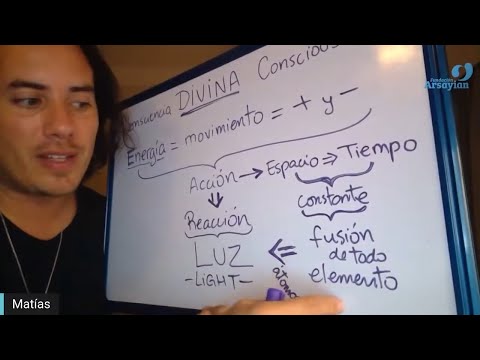 Consciencia DIVINA Conscious
Energía = movimiento = + y -
Acción → Espacio ⇒ Tiempo
constante
Reacción
fusión
de todo
elemento
LUZ ⇐
-LIGHT-
Fundación
Arsayian
Matías